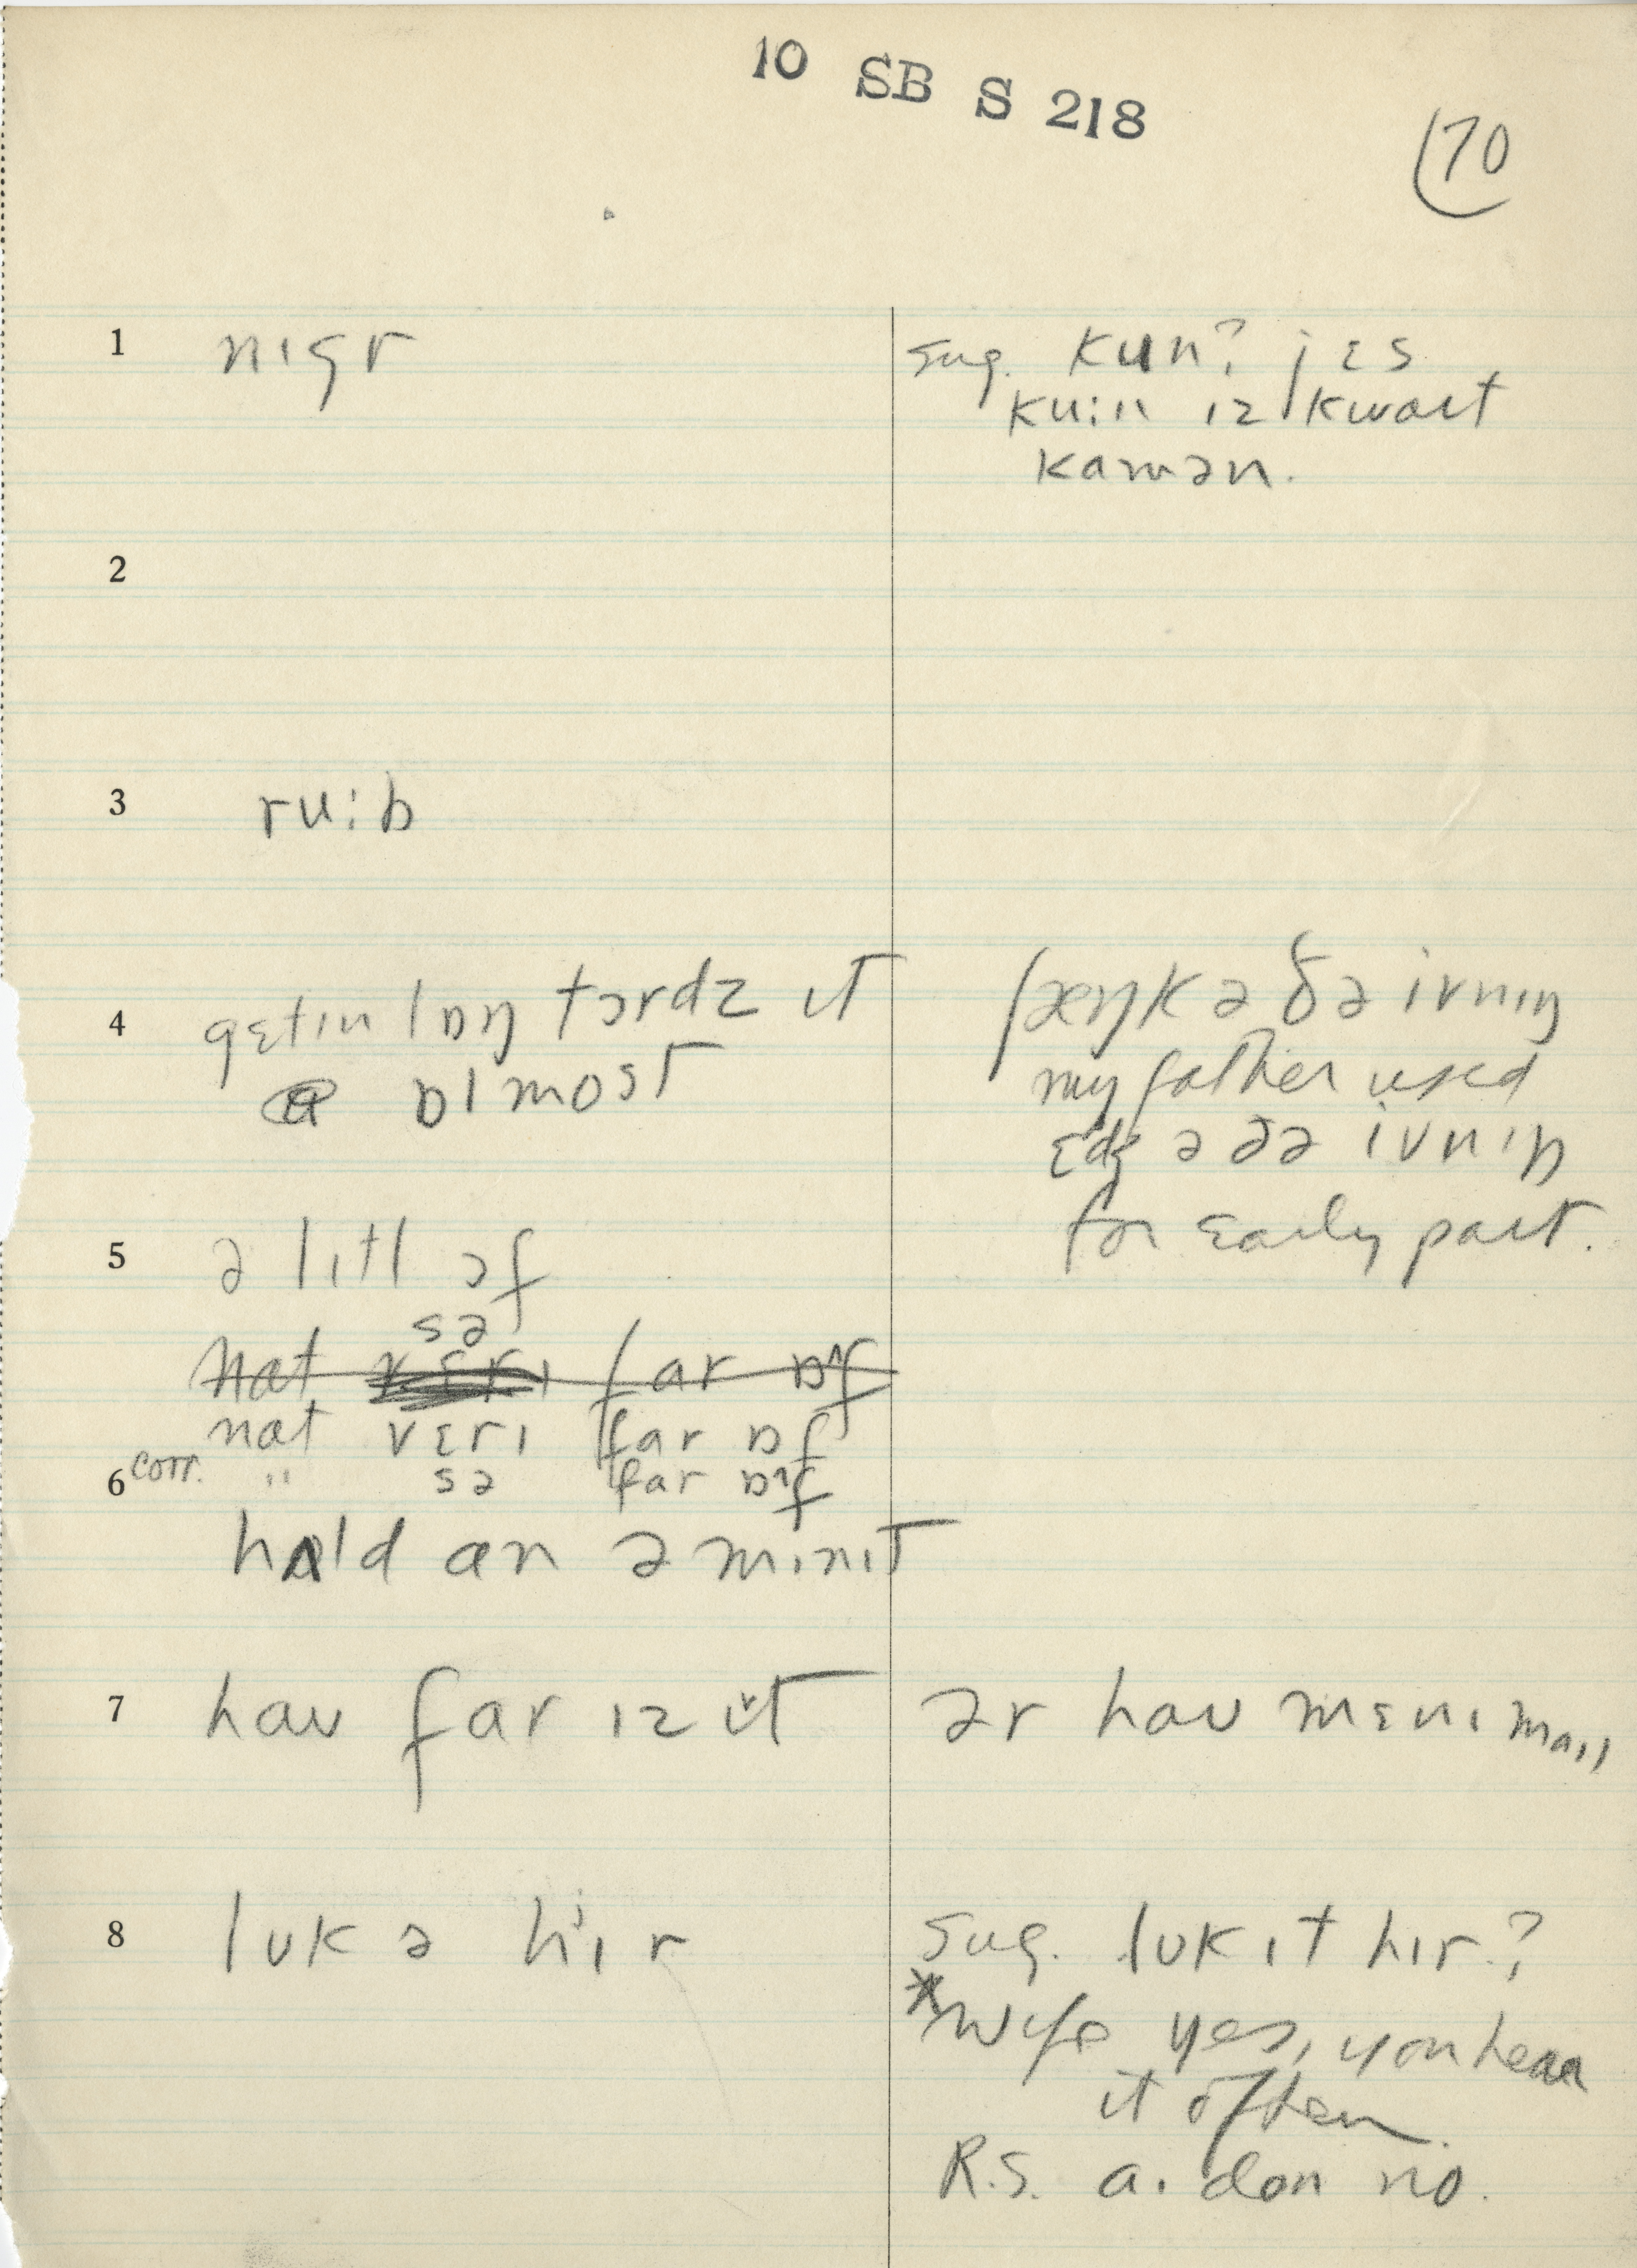 10 SB S 218
70
1 nɪgr
sug. kun? jɛs
ku:n ɪz kwaɪt
kamən.
2
3 ru:b
4 gɛtɪn lɒŋ tɔrdz ɪt
ɒlmost
ʃæŋk ə ðə ivnɪŋ
my father used
ɛdʒ ə ðə ivnɪŋ
for early part.
5 ə lɪtl ɔf
sə
nat vɛrɪ far ɒ^f
nat vɛrɪ far ɒf
6 corr. " sə far ɒ^f
hʌld an ə mɪnɪt
7 haʊ far ɪz ɪt
ər haʊ mɛnɪ maɪl
8 lʊk ə hɪr
sug. lʊk ɪt hɪr?
*Wife yes, you hear
it often.
R.S. aɪ don no.